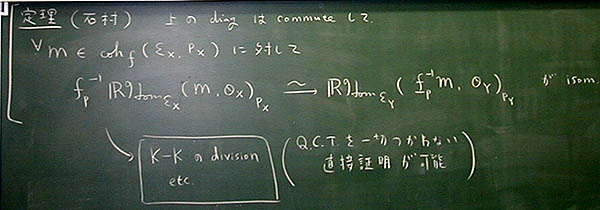 定理 (石村) 上の diag は commute して.
∀m ∈ coh_f (ℰ_X, P_X) に対して
f_p^{-1} ℝℋom_{ℰ_X} (m, θ_X)_{P_X} ≃→ ℝℋom_{ℰ_Y} (f_p^{-1} m, θ_Y)_{P_Y} が isom.
K-K の division etc.
(Q.C.T. を一切つかわない
直接証明が可能)